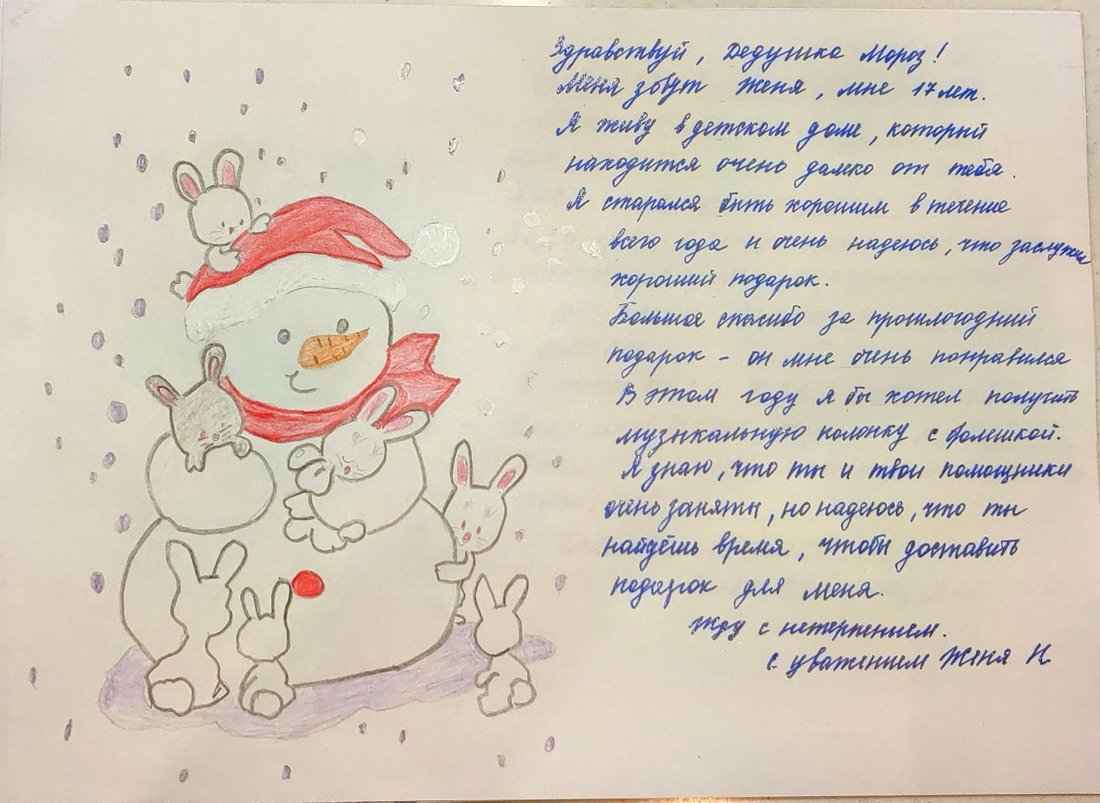 Здравствуй, Дедушка Мороз!
Меня зовут Женя, мне 17 лет.
Я живу в детском доме, который
находится очень далеко от тебя.
Я старался быть хорошим в течение
всего года и очень надеюсь, что заслужил
хороший подарок.
Большое спасибо за прошлогодний
подарок - он мне очень понравился
В этом году я бы хотел получить
музыкальную колонку с флешкой.
Я знаю, что ты и твои помощники
очень заняты, но надеюсь, что ты
найдёшь время, чтобы доставить
подарок для меня.
Жду с нетерпением.
С уважением Женя Н